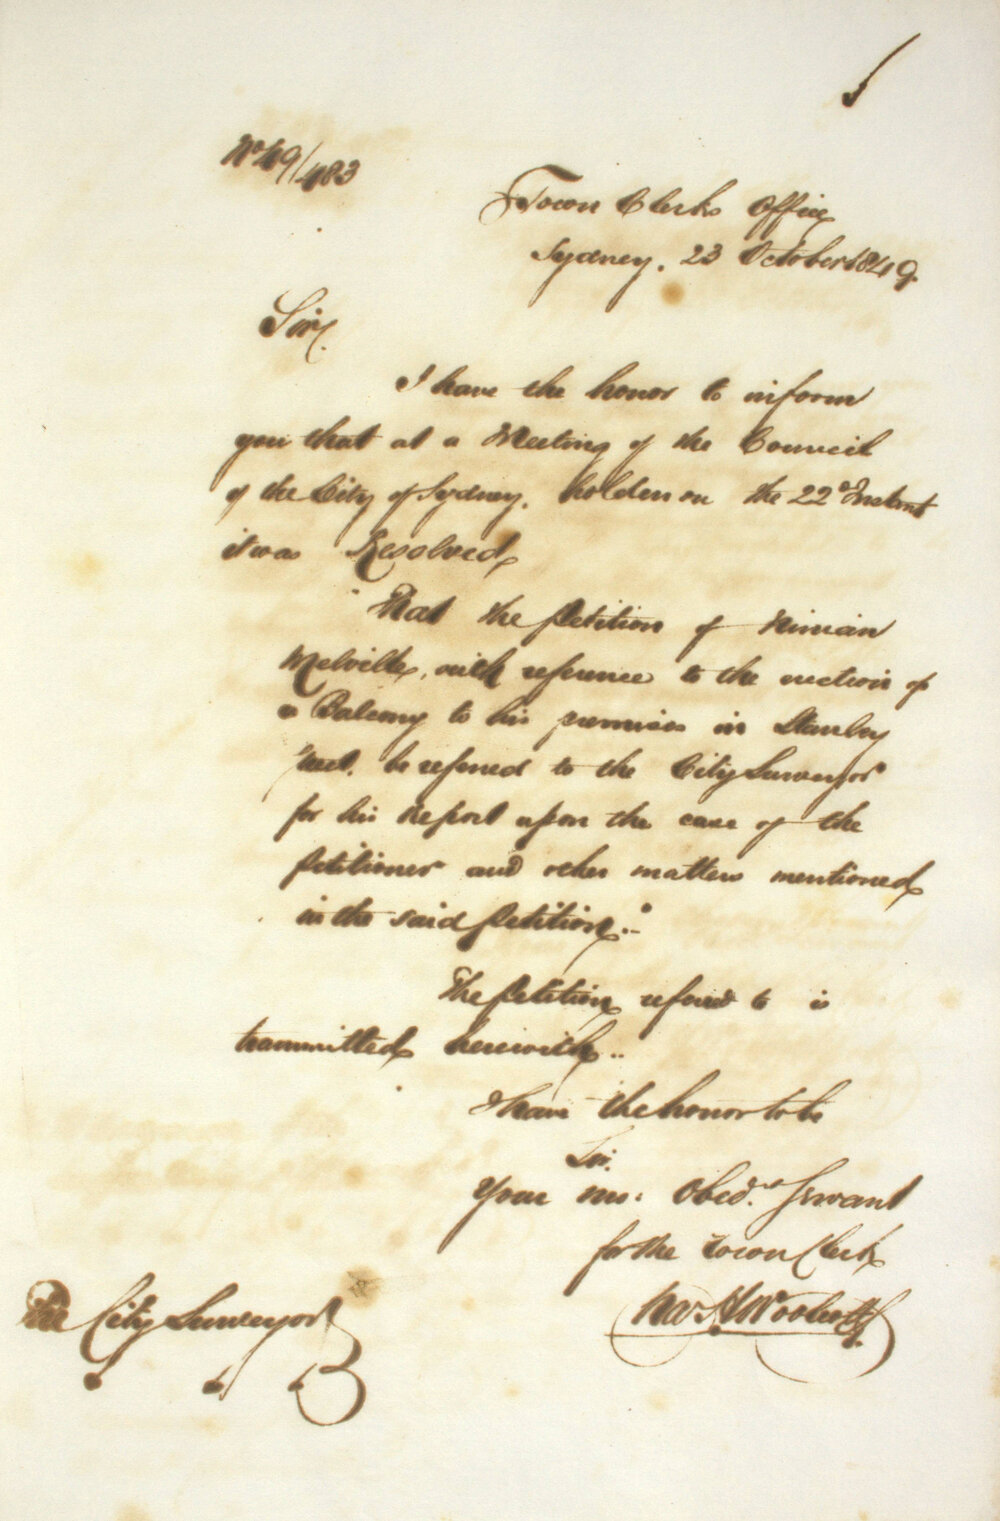 No 49/483
Town Clerks Office
Sydney. 23 October 1849.
Sir,
I have the honor to inform
you that at a Meeting of the Council
of the City of Sydney. holden on the 22d Instant
it was Resolved,
"That the petition of Ninian
Melville, with reference to the erection of
a Balcony to his premises in Stanley
Street. be referred to the City Surveyor
for his Report upon the case of the
petitioner and other matters mentioned
in the said petition."
The petition referred to is
transmitted herewith..
I have the honor to be
Sir.
Your mo: Obedt. Servant
for the Town Clerk
Woolcott
The City Surveyor